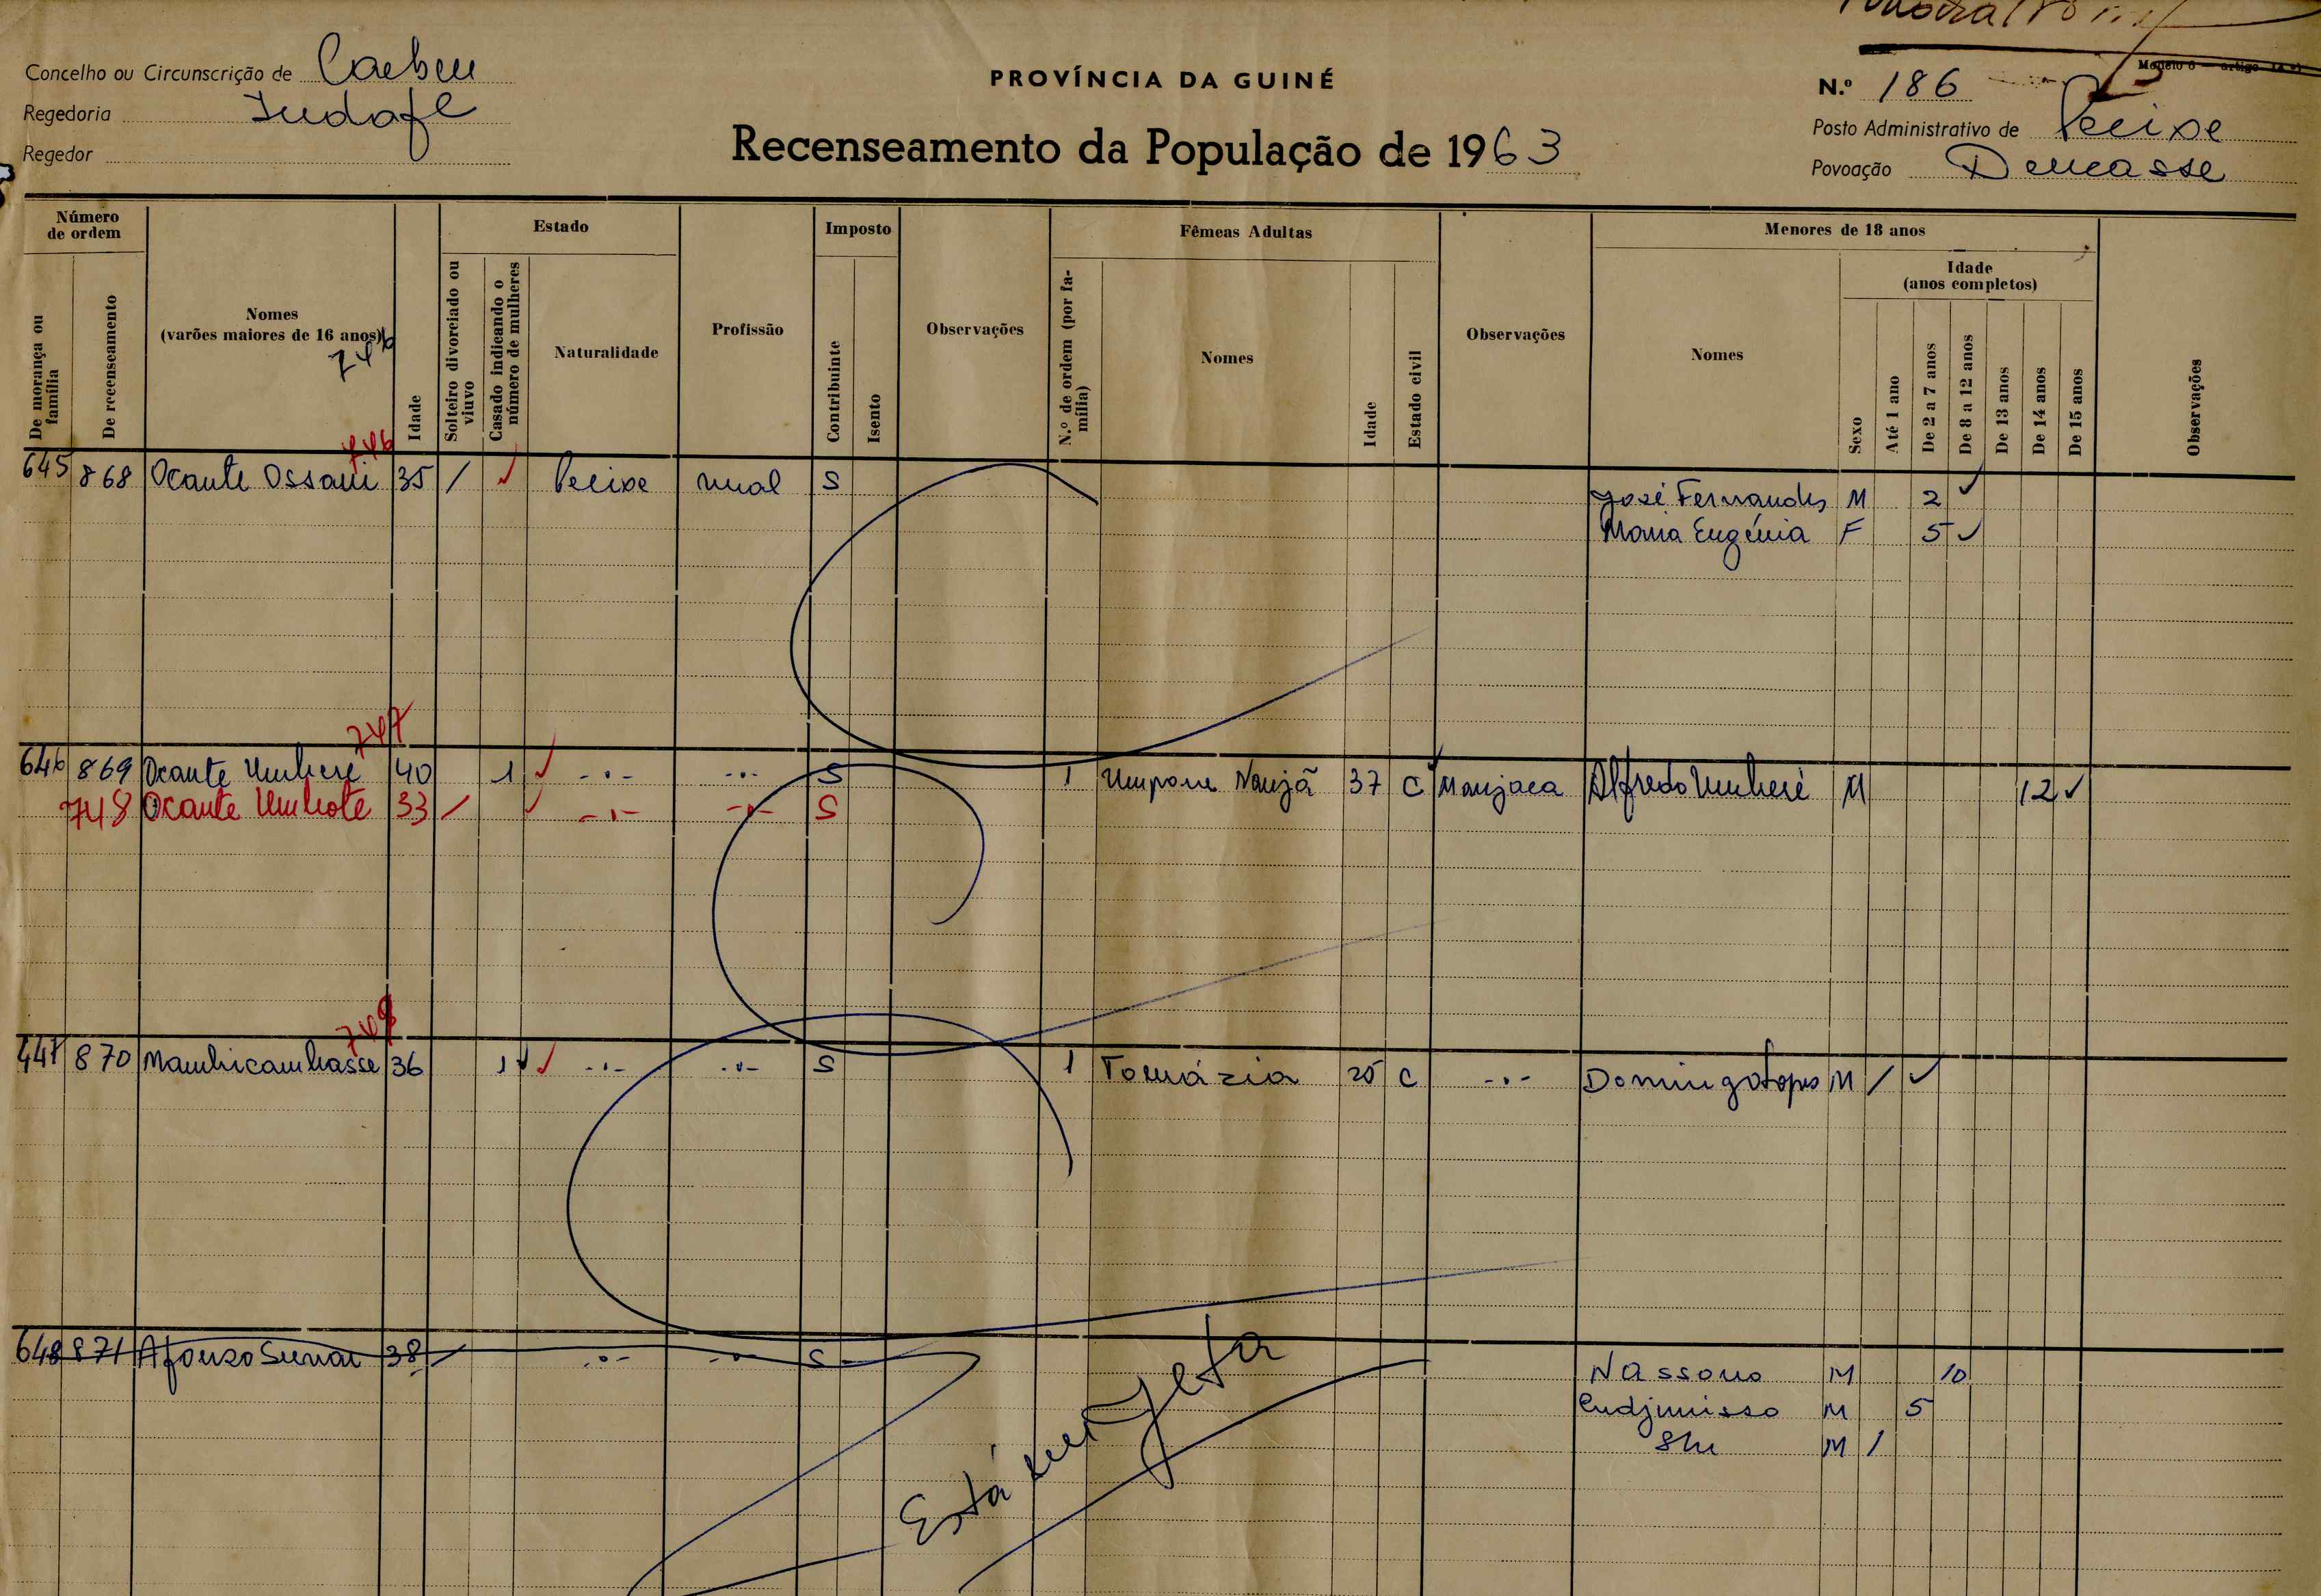 Concelho ou Circunscrição de
Regedoria
Regedor
PROVÍNCIA DA GUINÉ
Recenseamento da População de 1963
N.º 186
Posto Administrativo de Pecixe
Povoação
Número de ordem
De morança ou família
De recenseamento
Nomes
(varões maiores de 16 anos)
746
Idade
Estado
Solteiro divorciado ou viuvo
Casado indicando o número de mulheres
Naturalidade
Profissão
Imposto
Contribuinte
Isento
Observações
Fêmeas Adultas
N.º de ordem (por família)
Nomes
Idade
Estado civil
Observações
Menores de 18 anos
Nomes
Sexo
Idade
(anos completos)
Até 1 ano
De 2 a 7 anos
De 8 a 12 anos
De 13 anos
De 14 anos
De 15 anos
Observações
746
645 868 Ocante 35 / ✓ Pecixe rural S José Fernandes M 2 ✓
Maria Eugénia F 5 ✓
747
646 869 Ocante Umheré 40 1 ✓ -·- -·- S 1 Nanjã 37 C Manjaca Alfredo Umheré M 12 ✓
748 Ocante Umhote 33 / ✓ -·- -·- S
749
447 870 36 1 ✓ ✓ -·- -·- S 1 Tomázia 25 C -·- Domingos Lopes M / ✓
648 871 Afonso 38 / -·- -·- S Nassono M 10
M 5
M /
Está